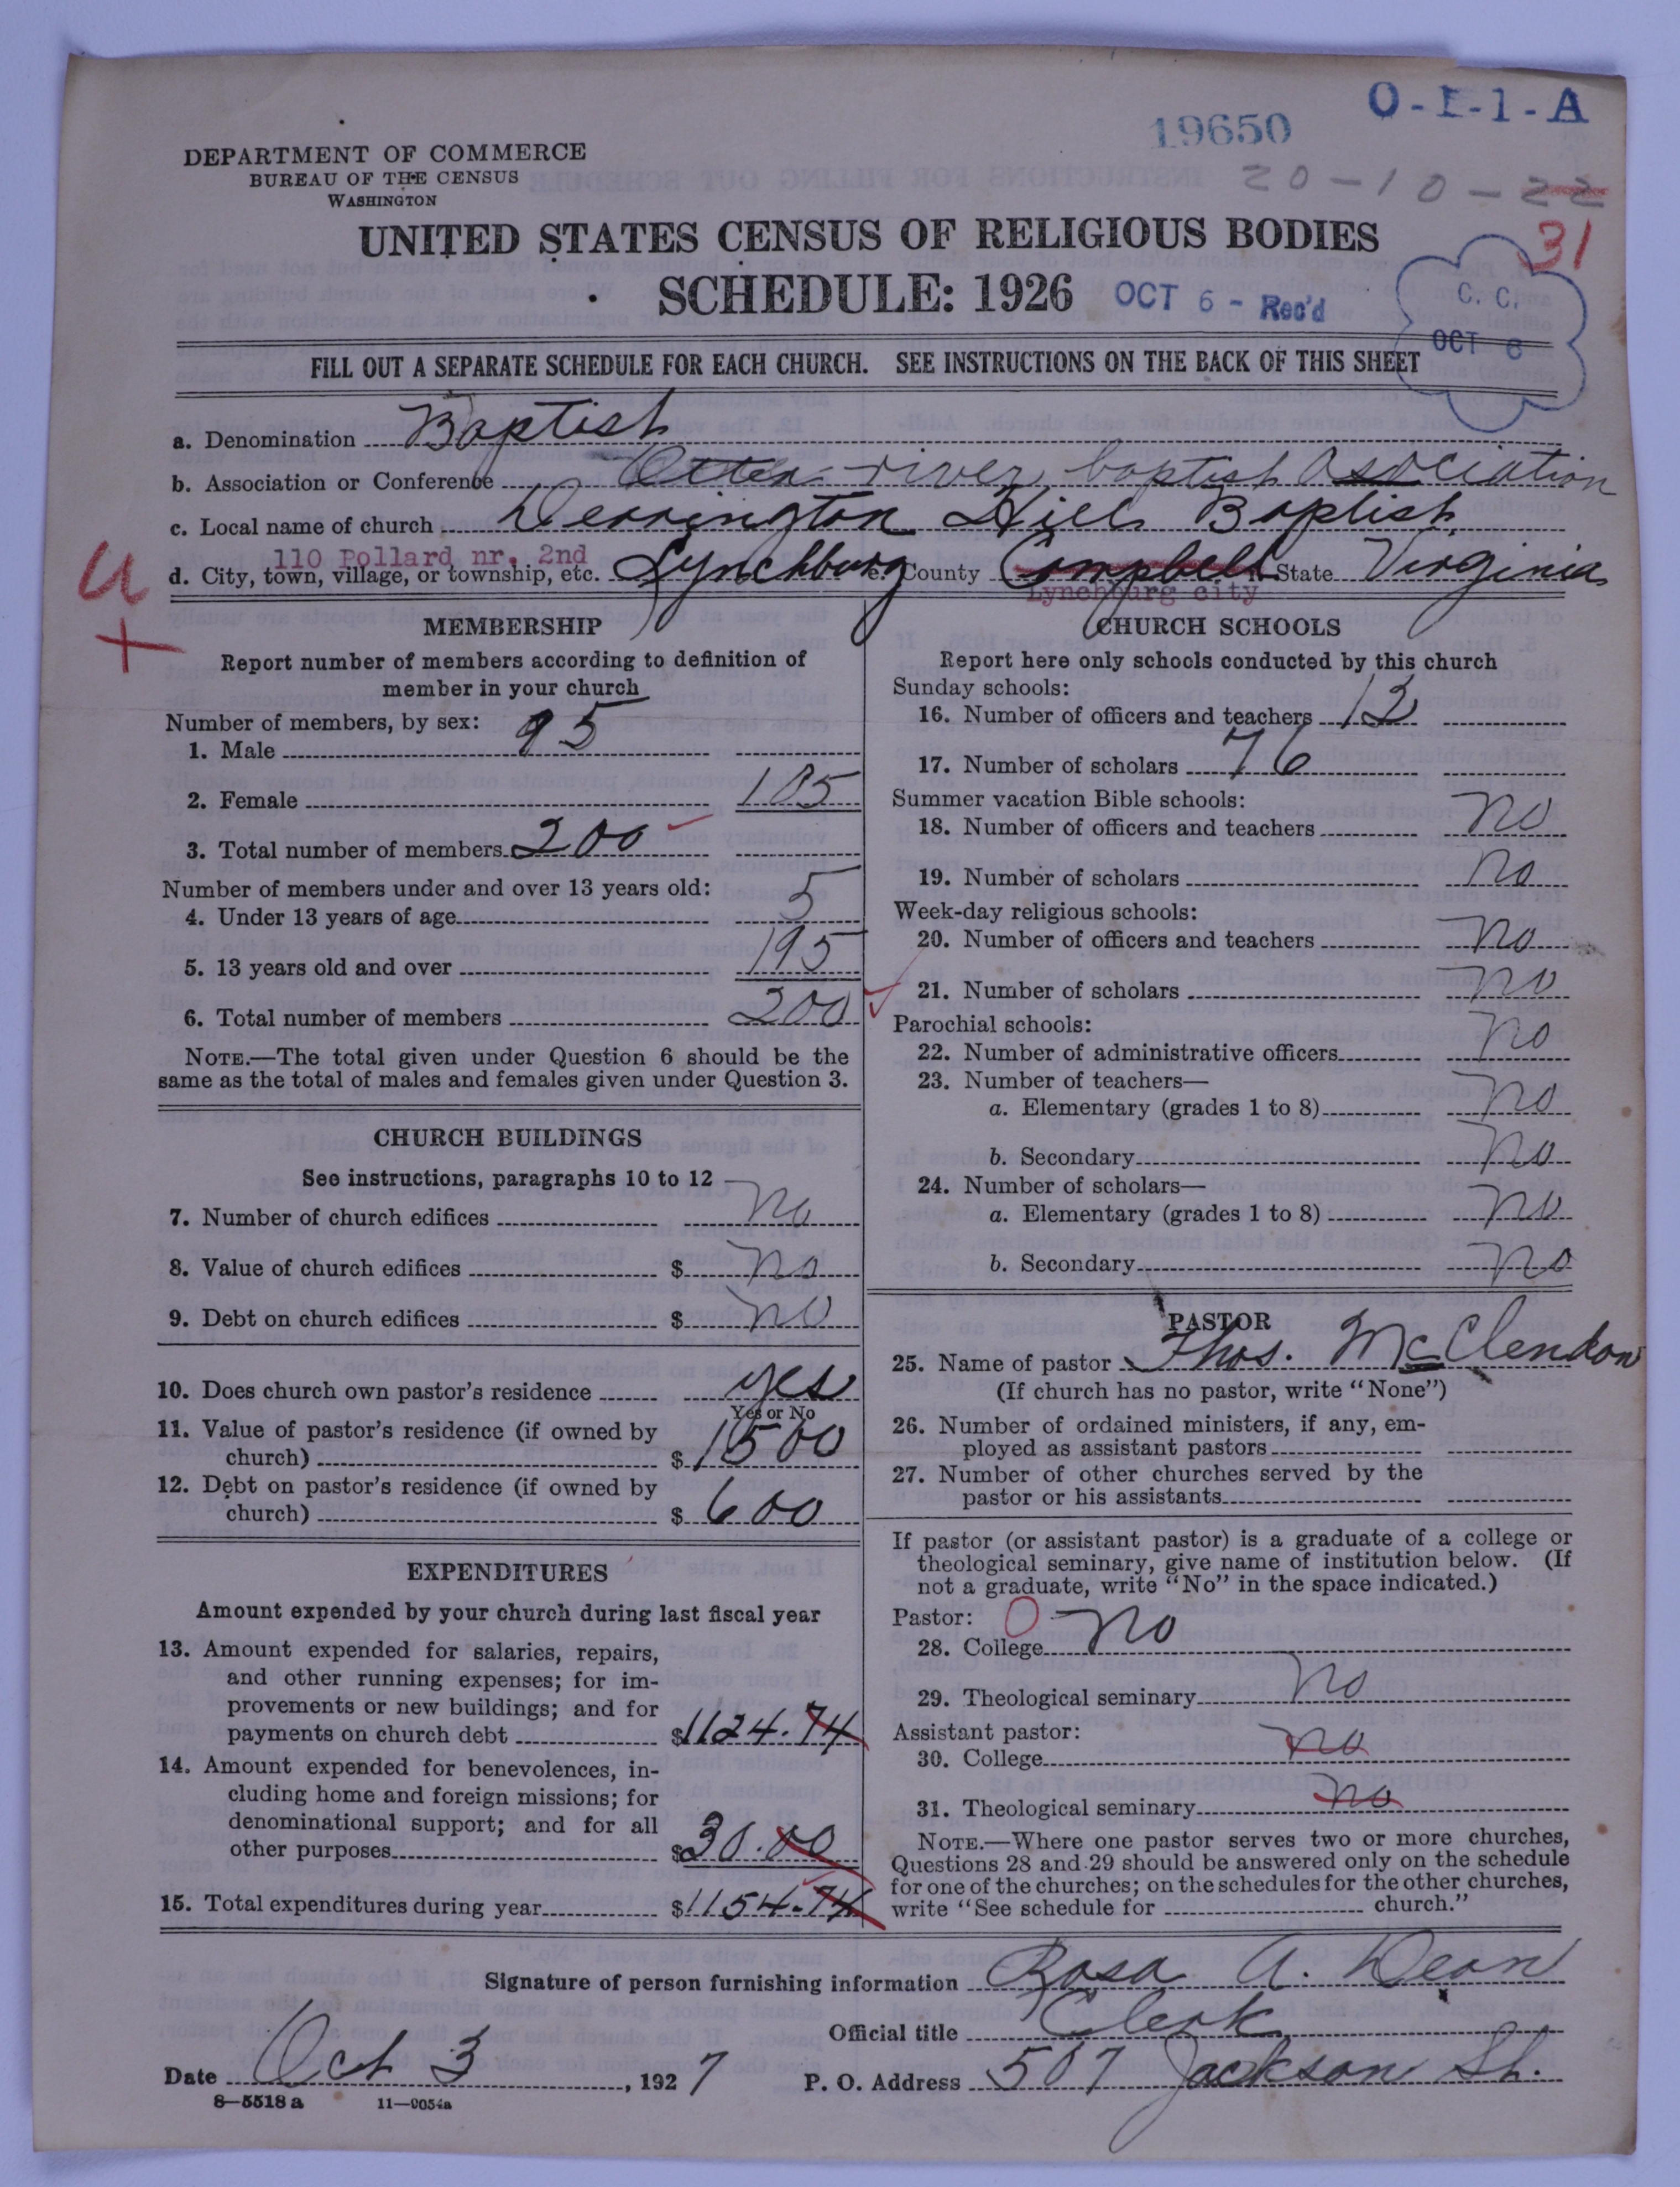 O-1-1-A
19650
20-10-22
31
DEPARTMENT OF COMMERCE
BUREAU OF THE CENSUS
WASHINGTON
UNITED STATES CENSUS OF RELIGIOUS BODIES
SCHEDULE: 1926
OCT 6 - Rec'd
C. C.
OCT 8
FILL OUT A SEPARATE SCHEDULE FOR EACH CHURCH. SEE INSTRUCTIONS ON THE BACK OF THIS SHEET
a. Denomination Baptist
b. Association or Conference Otter river baptist Asociation
c. Local name of church Dearington Hill Baptist
110 Pollard nr. 2nd
d. City, town, village, or township, etc. Lynchburg e. County Campbell f. State Virginia
Lynchburg city
U
+
MEMBERSHIP
Report number of members according to definition of
member in your church
Number of members, by sex:
1. Male 95
2. Female 105
3. Total number of members 200
Number of members under and over 13 years old:
4. Under 13 years of age 5
5. 13 years old and over 195
6. Total number of members 200
NOTE.—The total given under Question 6 should be the
same as the total of males and females given under Question 3.
CHURCH BUILDINGS
See instructions, paragraphs 10 to 12
7. Number of church edifices no
8. Value of church edifices $ no
9. Debt on church edifices $ no
10. Does church own pastor's residence yes
Yes or No
11. Value of pastor's residence (if owned by
church) $ 1500
12. Debt on pastor's residence (if owned by
church) $ 600
EXPENDITURES
Amount expended by your church during last fiscal year
13. Amount expended for salaries, repairs,
and other running expenses; for im-
provements or new buildings; and for
payments on church debt $1124.74
14. Amount expended for benevolences, in-
cluding home and foreign missions; for
denominational support; and for all
other purposes $30.00
15. Total expenditures during year $1154.74
CHURCH SCHOOLS
Report here only schools conducted by this church
Sunday schools:
16. Number of officers and teachers 13
17. Number of scholars 76
Summer vacation Bible schools:
18. Number of officers and teachers no
19. Number of scholars no
Week-day religious schools:
20. Number of officers and teachers no
21. Number of scholars no
Parochial schools:
22. Number of administrative officers no
23. Number of teachers—
a. Elementary (grades 1 to 8) no
b. Secondary no
24. Number of scholars—
a. Elementary (grades 1 to 8) no
b. Secondary no
PASTOR
25. Name of pastor Thos. McClendon
(If church has no pastor, write "None")
26. Number of ordained ministers, if any, em-
ployed as assistant pastors
27. Number of other churches served by the
pastor or his assistants
If pastor (or assistant pastor) is a graduate of a college or
theological seminary, give name of institution below. (If
not a graduate, write "No" in the space indicated.)
Pastor: 0
28. College no
29. Theological seminary no
Assistant pastor:
30. College no
31. Theological seminary no
NOTE.—Where one pastor serves two or more churches,
Questions 28 and 29 should be answered only on the schedule
for one of the churches; on the schedules for the other churches,
write "See schedule for church."
Signature of person furnishing information Rosa A. Dean
Official title Clerk
Date Oct 3, 1927 P. O. Address 507 Jackson St.
8—5518 a 11—9054a